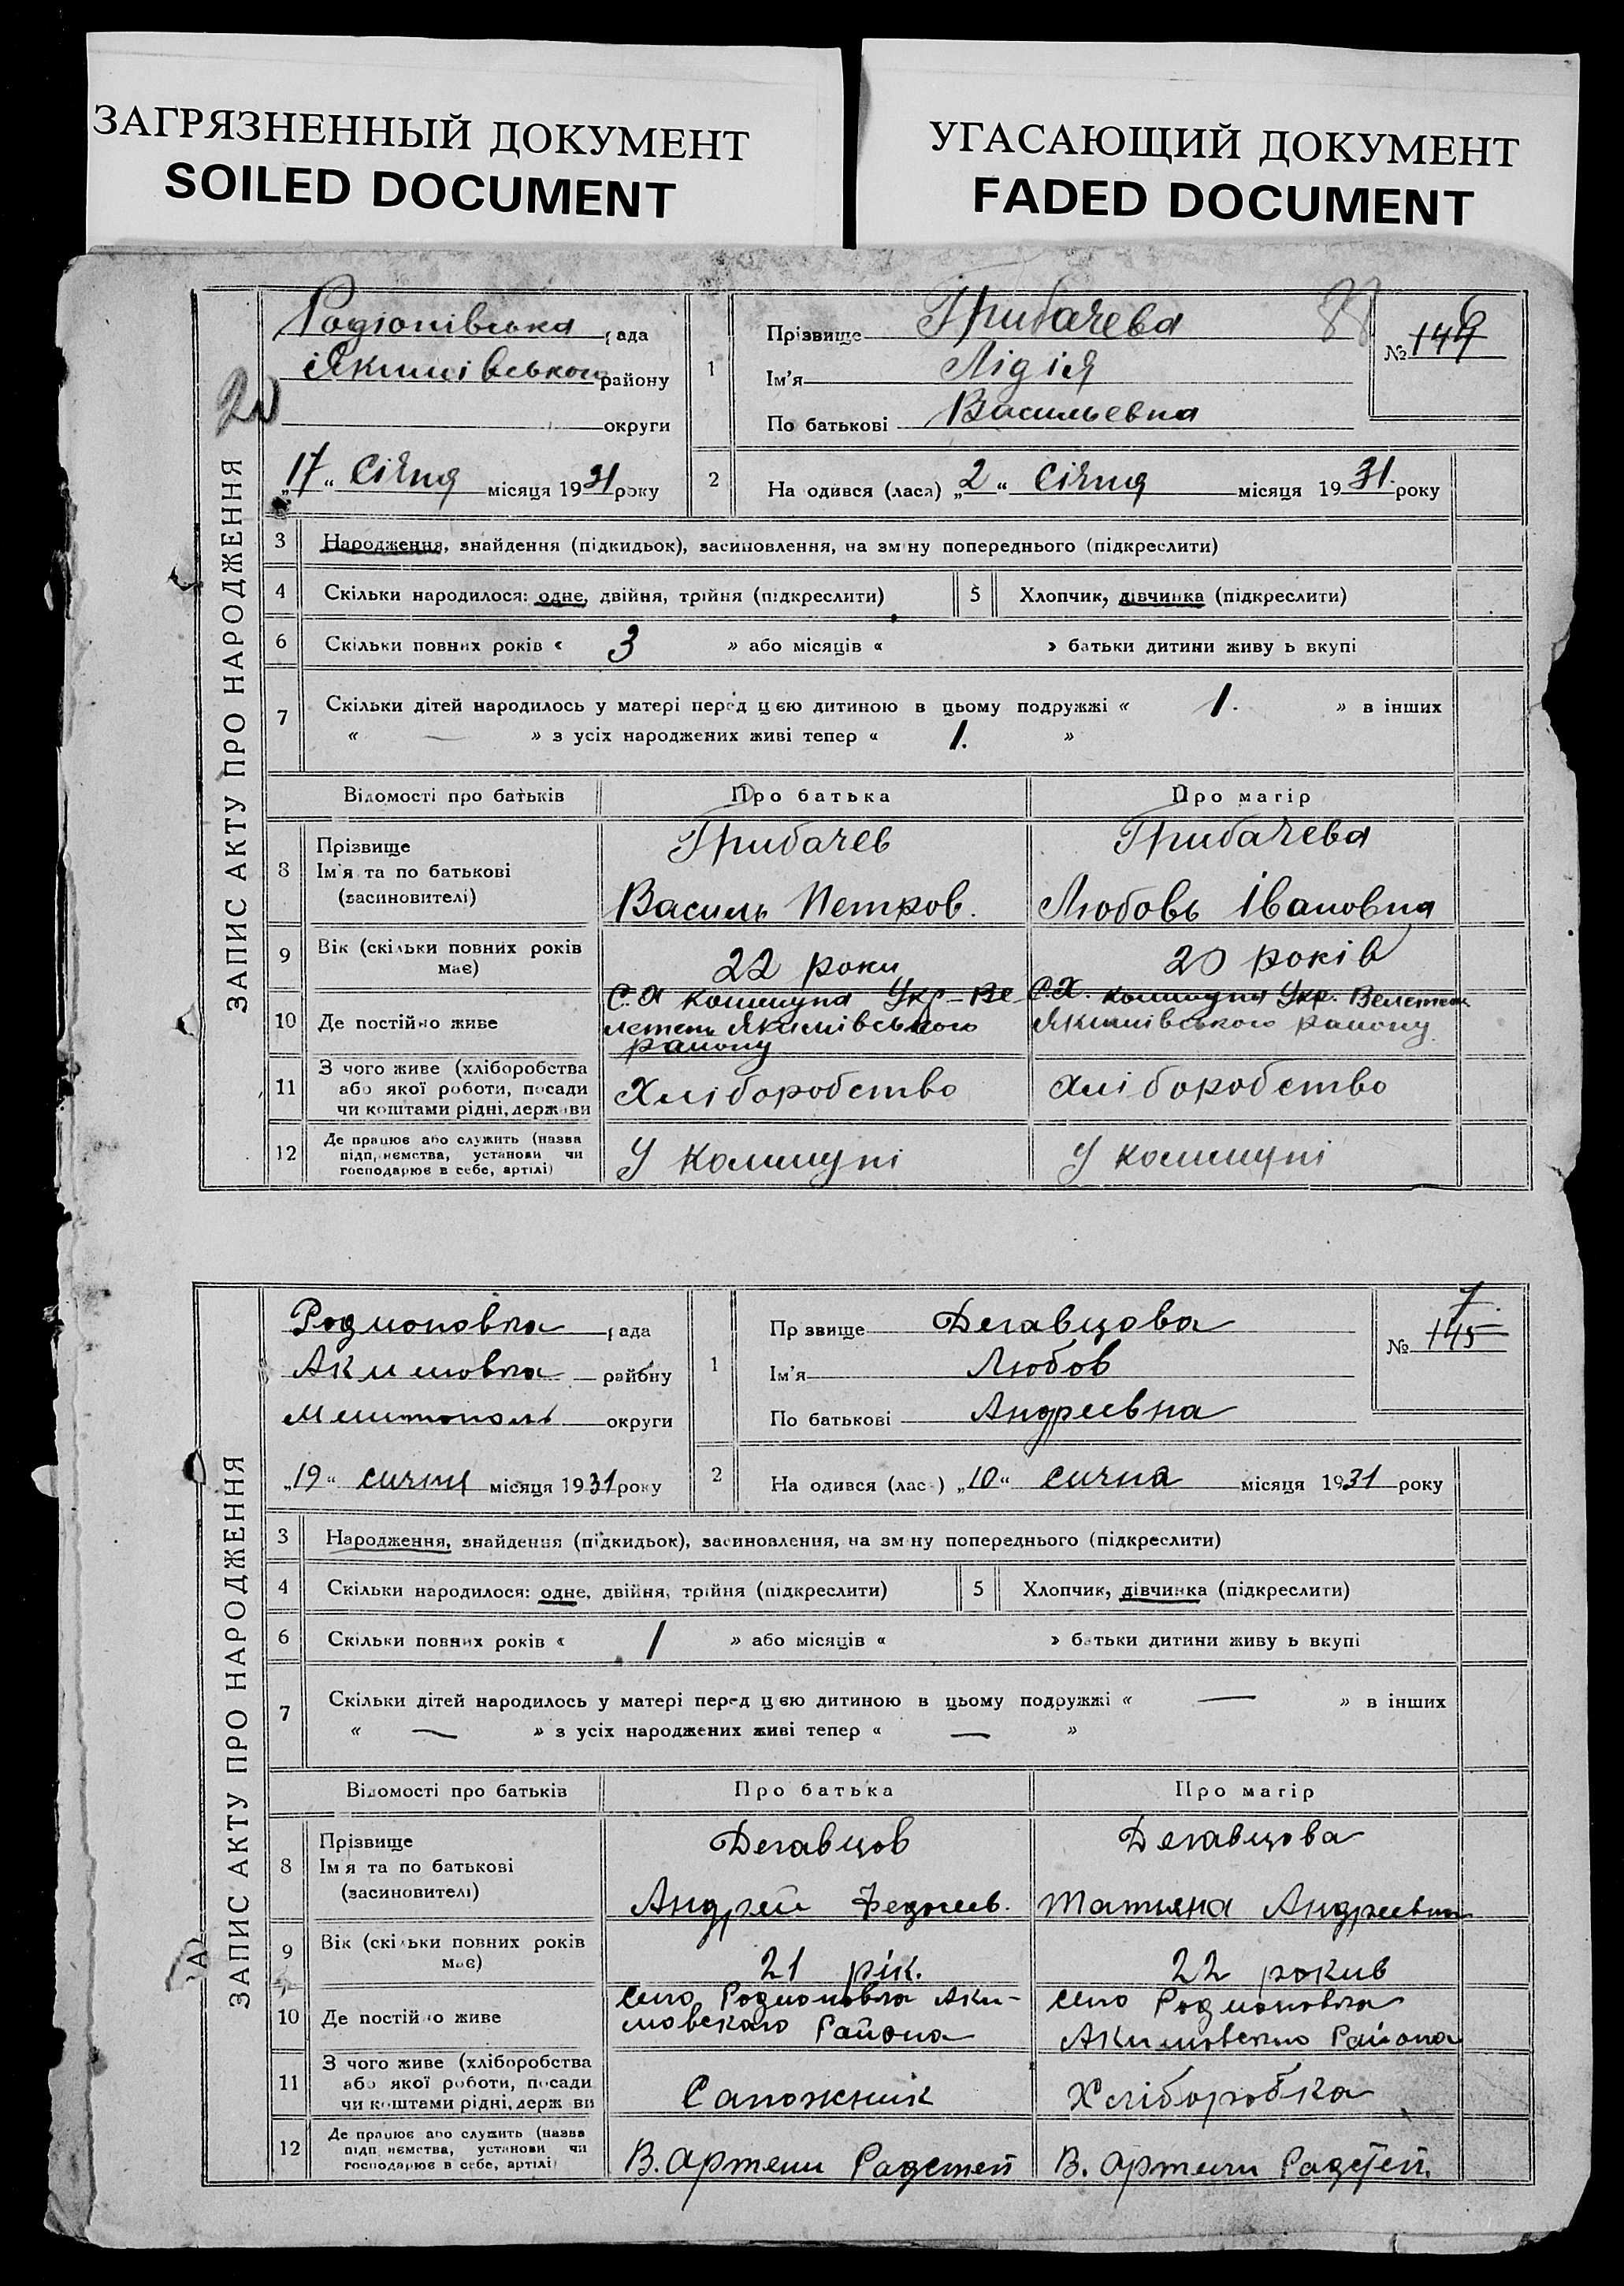 ЗАГРЯЗНЕННЫЙ ДОКУМЕНТ
SOILED DOCUMENT
УГАСАЮЩИЙ ДОКУМЕНТ
FADED DOCUMENT
ЗАПИС АКТУ ПРО НАРОДЖЕННЯ
Родіонівська рада
Якимівського району
округи
„17“ січня місяця 1931 року
1 Прізвище Грибачева
Ім'я Лідія
По батькові Васильевна
№ 144 6
2 На одився (лася) „2“ січня місяця 1931. року
3 Народження, знайдення (підкидьок), засиновлення, на зм ну попереднього (підкреслити)
4 Скільки народилося: одне, двійня, трійня (підкреслити) 5 Хлопчик, дівчинка (підкреслити)
6 Скільки повних років « 3 » або місяців « » батьки дитини живу ь вкупі
7 Скільки дітей народилось у матері перед цею дитиною в цьому подружжі « 1. » в інших
« — » з усіх народжених живі тепер « 1. »
Відомості про батьків Про батька Про матір
8 Прізвище
Ім'я та по батькові
(засиновителі)
Грибачев
Василь Петров.
Грибачева
Любовь Івановна
9 Вік (скільки повних років
має)
22 роки
20 років
10 Де постійно живе
С.Х комуна Укр-Ве-
летень Якимівського
району
С.Х. комуна Укр. Велетень
Якимівського району.
11 З чого живе (хліборобства
або якої роботи, посади
чи коштами рідні, держави
Хліборобство
Хліборобство
12 Де працює або служить (назва
підп, немства, установи чи
господарює в себе, артілі)
У комуні
У комуні
ЗАПИС АКТУ ПРО НАРОДЖЕННЯ
Родионовка рада
Акимовка району
Мелитополь округи
„19“ сичня місяця 1931 року
1 Пр звище Дегавцова
Ім'я Любов
По батькові Андреевна
№ 145 7
2 На одився (лас ) „10“ сичня місяця 1931 року
3 Народження, знайдення (підкидьок), засиновлення, на зм ну попереднього (підкреслити)
4 Скільки народилося: одне, двійня, трійня (підкреслити) 5 Хлопчик, дівчинка (підкреслити)
6 Скільки повних років « 1 » або місяців « » батьки дитини живу ь вкупі
7 Скільки дітей народилось у матері перед цею дитиною в цьому подружжі « — » в інших
« — » з усіх народжених живі тепер « — »
Відомості про батьків Про батька Про матір
8 Прізвище
Ім я та по батькові
(засиновителі)
Дегавцов
Андрей
Дегавцова
Татьяна Андреевна
9 Вік (скільки повних років
має)
21 рік.
22 рокив
10 Де постійно живе
село Родионовка Аки-
мовского Района
село Родионовка
Акимовского Района
11 З чого живе (хліборобства
або якої роботи, посади
чи коштами рідні, держ ви
Сапожник
Хліборобка
12 Де працює або служить (назва
підп немства, установи чи
господарює в себе, артілі)
В. Артели Радстеп
В. Артели Радстеп.